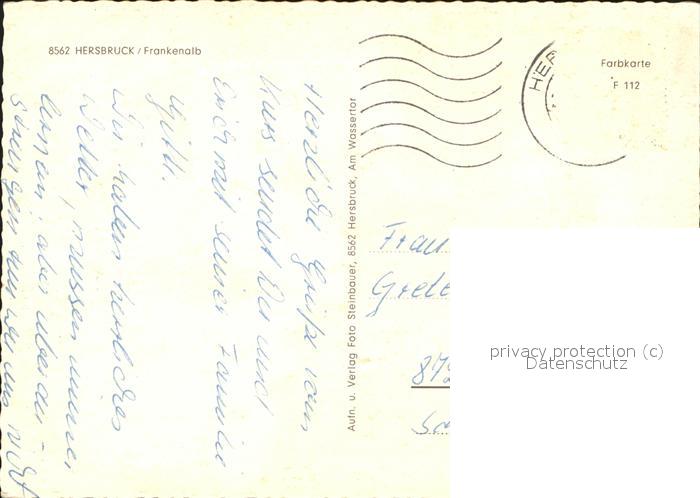 8562 HERSBRUCK / Frankenalb
Farbkarte
F 112
HER
Aufn. u. Verlag Foto Steinbauer, 8562 Hersbruck, Am Wassertor
Herzliche Grüße vom
Kurs sendet Dir und
Erich mit seiner Familie
Gitti.
Wir haben herrliches
Wetter, müssen immer
lernen; aber
Frau
Grete
privacy protection (c)
Datenschutz